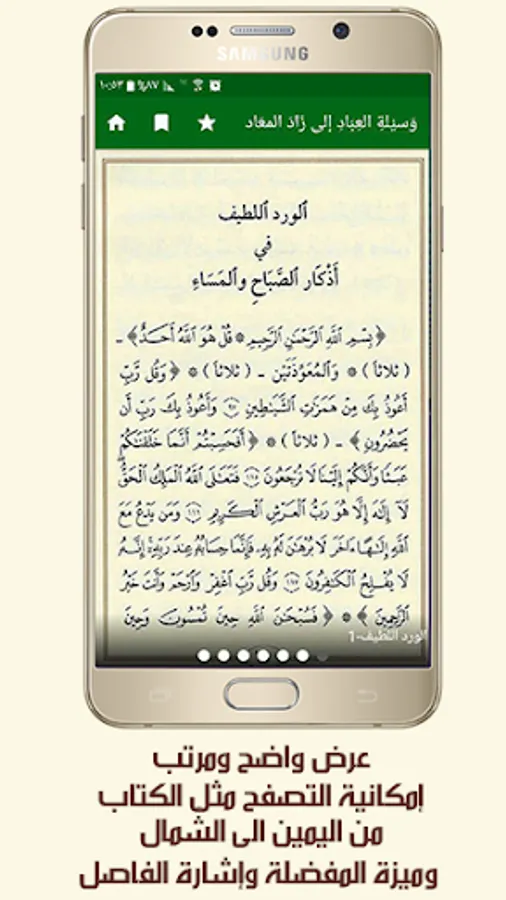 SAMSUNG
١٠:٥٣ %٨٧
وَسيلةِ العِبَادِ إلى زَادَ المعَاد
ٱلورد ٱللطيف
في
أَذْكَار ٱلصَّبَاحِ وٱلمَسَاءِ
﴿بِسْمِ ٱللَّهِ ٱلرَّحْمَٰنِ ٱلرَّحِيمِ * قُلْ هُوَ ٱللَّهُ أَحَدٌ﴾ ـ
( ثلاثاً ) * وَٱلْمُعَوِّذَتَيْن ـ ( ثلاثاً ) * ﴿وَقُل رَّبِّ
أَعُوذُ بِكَ مِنْ هَمَزَٰتِ ٱلشَّيَٰطِينِ ۝٩٧ وَأَعُوذُ بِكَ رَبِّ أَن
يَحْضُرُونِ﴾ ـ ( ثلاثاً ) * ﴿أَفَحَسِبْتُمْ أَنَّمَا خَلَقْنَٰكُمْ
عَبَثًا وَأَنَّكُمْ إِلَيْنَا لَا تُرْجَعُونَ ۝١١٥ فَتَعَٰلَى ٱللَّهُ ٱلْمَلِكُ ٱلْحَقُّ
لَآ إِلَٰهَ إِلَّا هُوَ رَبُّ ٱلْعَرْشِ ٱلْكَرِيمِ ۝١١٦ وَمَن يَدْعُ مَعَ
ٱللَّهِ إِلَٰهًا ءَاخَرَ لَا بُرْهَٰنَ لَهُۥ بِهِۦ فَإِنَّمَا حِسَابُهُۥ عِندَ رَبِّهِۦٓ إِنَّهُۥ
لَا يُفْلِحُ ٱلْكَٰفِرُونَ ۝١١٧ وَقُل رَّبِّ ٱغْفِرْ وَٱرْحَمْ وَأَنتَ خَيْرُ
ٱلرَّٰحِمِينَ﴾ * ﴿فَسُبْحَٰنَ ٱللَّهِ حِينَ تُمْسُونَ وَحِينَ
الورد اللطيف-1
عرض واضح ومرتب
إمكانية التصفح مثل الكتاب
من اليمين الى الشمال
وميزة المفضلة وإشارة الفاصل